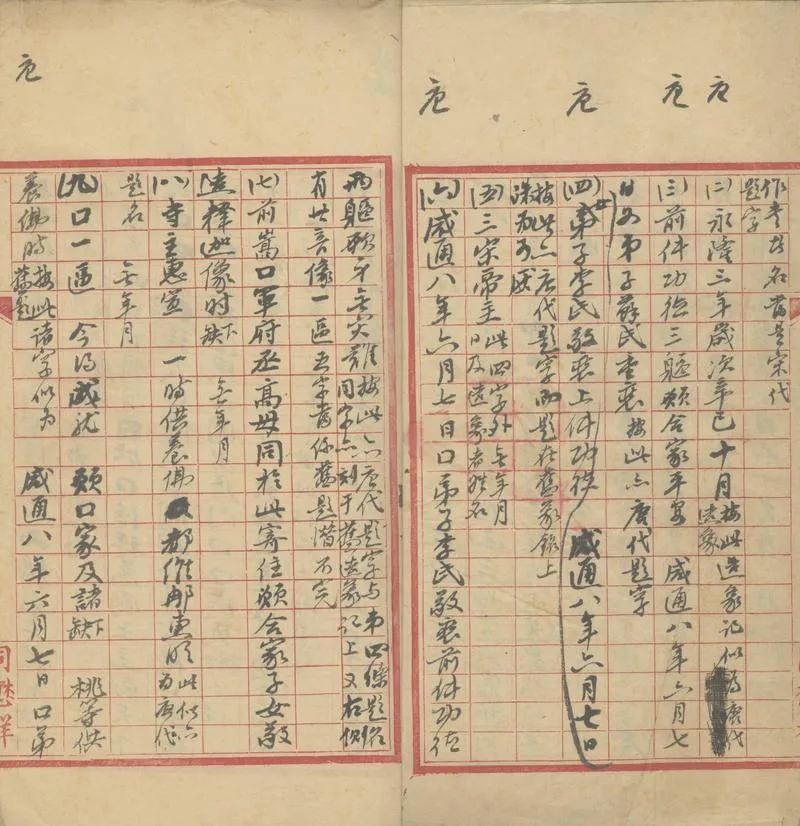 唐
唐
唐
唐
題字
(二)永隆三年歲次辛巳十月按此造象記似為唐代
造象
(三)前件功德三軀願合家平安 咸通八年六月七
日女弟子蘇氏 按此亦唐代題字
(四)女弟子李氏敬裝上件功德 咸通八年六月七日
按此亦唐代題字而題在舊象銘上
(五)三宋帝主 此四字外無年月
日及造象者姓名
(六)咸通八年六月七日口弟子李氏敬裝前件功德
唐
兩軀 按此亦唐代題字与弟四條題名
同字亦刻于舊造象記上又右側
有世音像一區五字當係舊題潛不完
(七)前嵩口軍府丞高母同於此寄住願合家子女敬
造釋迦像時缺下 無年月
(八)寺主惠宣 一時供養佛 都維那惠 此似亦
為唐代
題名 無年月
(九)口一區 今得成就 願口家及諸缺下 桃等供
養佛時 按此
舊題 諸字似为 咸通八年六月七日口弟